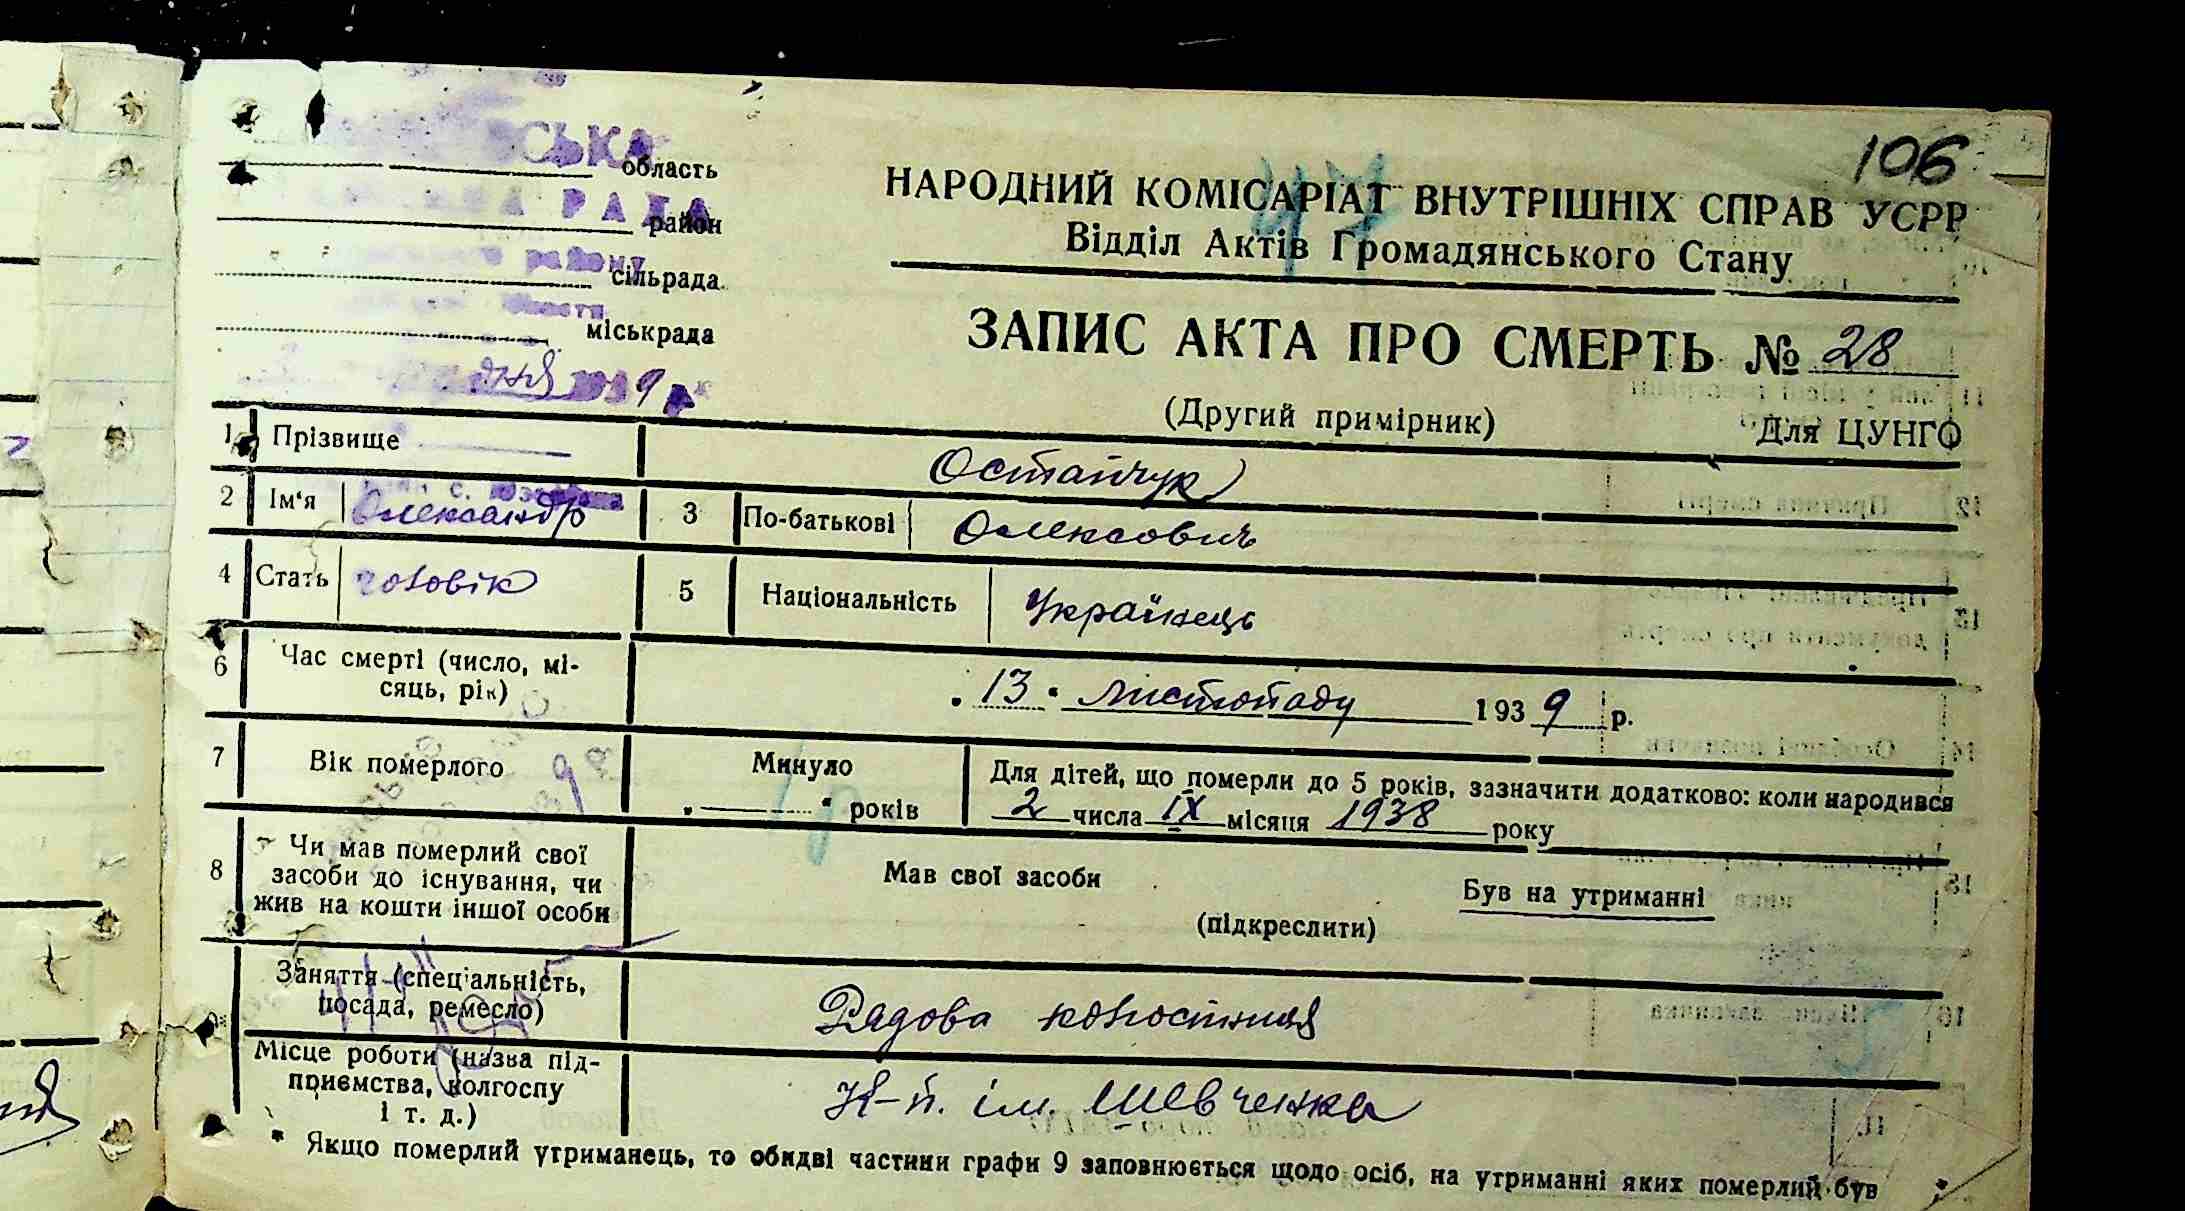 106
СЬКА
область
РАДА
район
району
сільрада
області
міськрада
дня 1939 р
НАРОДНИЙ КОМІСАРІАТ ВНУТРІШНІХ СПРАВ УСРР
Відділ Актів Громадянського Стану
ЗАПИС АКТА ПРО СМЕРТЬ № 28
(Другий примірник) Для ЦУНГО
1 Прізвище Остапчук
2 Ім'я Олександр 3 По-батькові Олексович
4 Стать чоловік 5 Національність Українець
6 Час смерті (число, мі-
сяць, рік) 13 листопаду 1939 р.
7 Вік померлого Минуло — років Для дітей, що померли до 5 років, зазначити додатково: коли народився
2 числа IX місяця 1938 року
8 Чи мав померлий свої
засоби до існування, чи
жив на кошти іншої особи
Мав свої засоби Був на утриманні
(підкреслити)
9* Заняття (спеціальність,
посада, ремесло) Рядова колгоспниця
Місце роботи (назва під-
приємства, колгоспу
і т. д.) К-п. ім. Шевченка
* Якщо померлий утриманець, то обидві частини графи 9 заповнюється щодо осіб, на утриманні яких померлий був